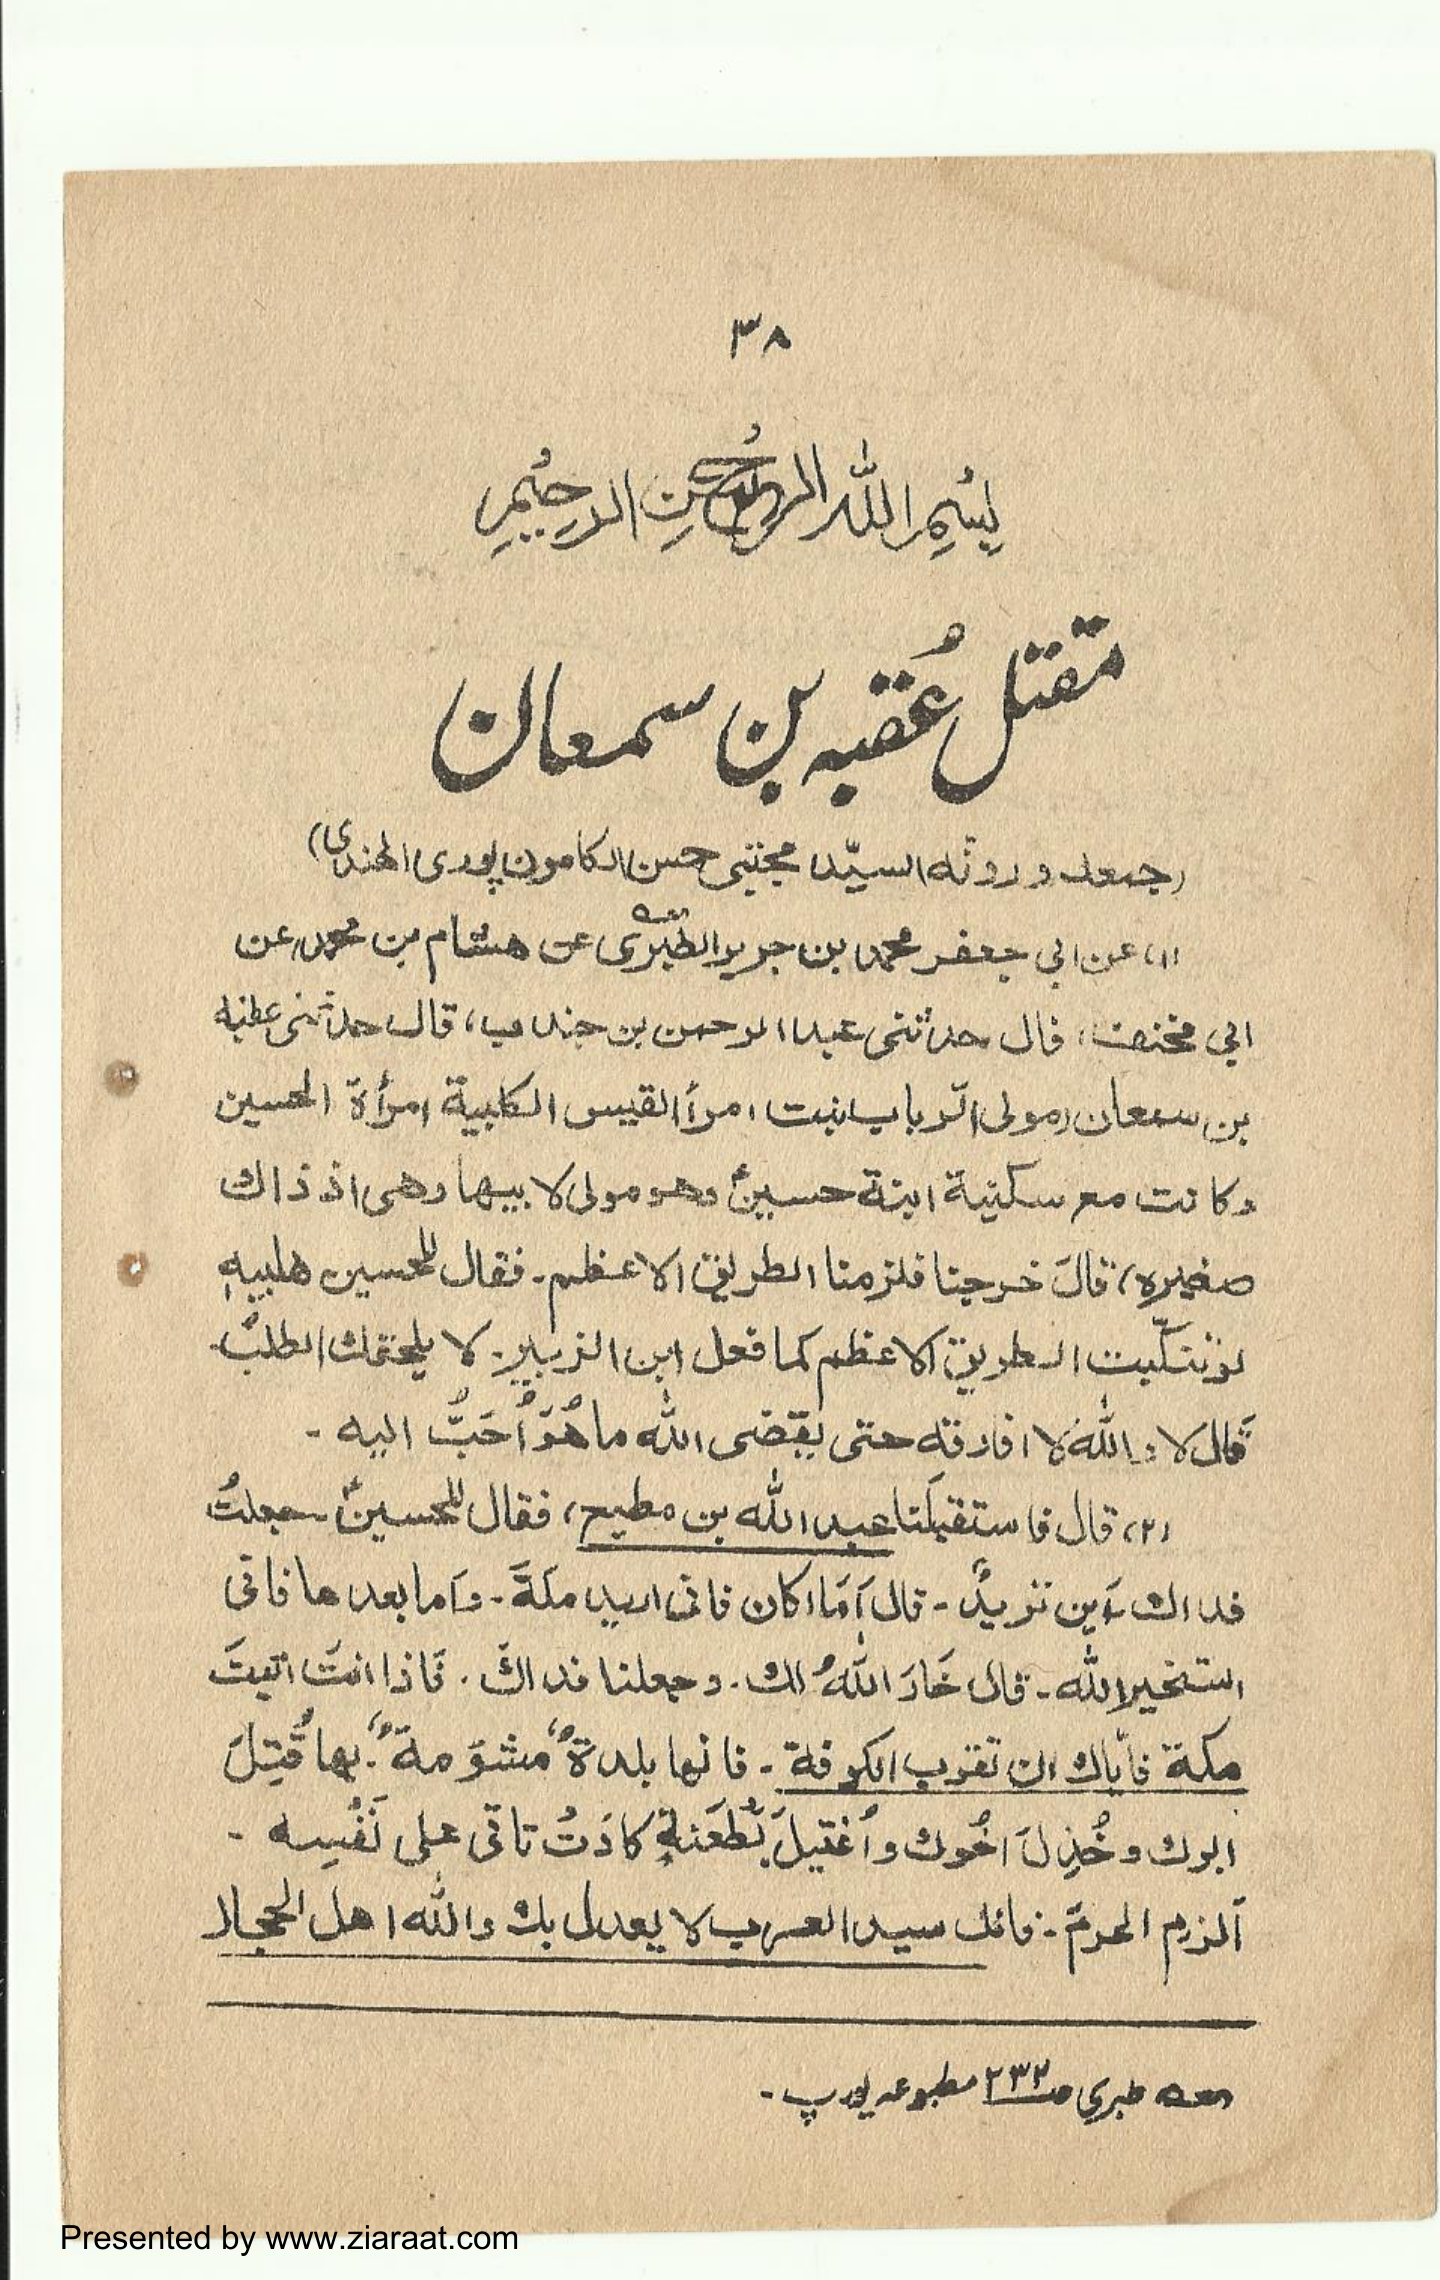 ٣٨
بِسْمِ اللّٰهِ الرَّحْمٰنِ الرَّحِيْمِ
مقتل عُقبہ بن سمعان
(جمعه ورتّبه السيّد مجتبى حسن الكامون پورى الهندى)
(١) عن ابي جعفر محمد بن جرير الطبرى عن هشام بن محمد، عن
ابي مخنف، قال حدثنى عبد الرحمن بن جندب، قال حدثنى عقبه
بن سمعان (مولى الرباب ابنت امرأ القيس الكلبية امرأة الحسين
وكانت مع سكنية ابنة حسينؑ وهو مولى لابيها وهى اذ ذاك
صغيره) قالَ خرجنا فلزمنا الطريق الاعظم۔ فقال للحسين
لو تنكّبت الطريق الاعظم كما فعل ابن الزبير۔ لا يلحقك الطلبُ۔
قَال لا واللّٰه لا افارقه حتى يقضى اللّٰه ما هُوَ اُحَبُّ اليه ۔
(٢) قال فاستقبلَنا عبد اللّٰه بن مطيح، فقال للحسينؑ ۔ جعلتُ
فداك اَين تريدُ ۔ قال اَمَا اكان فانى اريد مكةَ ۔ وَاما بعدها فانى
استخير اللّٰه ۔ قال خَارَ اللّٰهُ لك ۔ وجعلنا فداكَ ۔ فَاذا انتَ اتيتَ
مكة فايّاك ان تقرب الكوفة ۔ فانها بلدةٌ مشوَمةٌ ۔ بها قُتِلَ
ابوك وخُذِلَ اخُوك واُغتيلَ بُطَعَنةٍ كادَتُ تاتى على نَفْسِه ۔
اَلزم الحرمَ ۔ فانك سيد العرب لا يعدل بك واللّٰه اهل الحجاز
طبري ص٢٣٢ مطبوعہ يورپ ۔
Presented by www.ziaraat.com